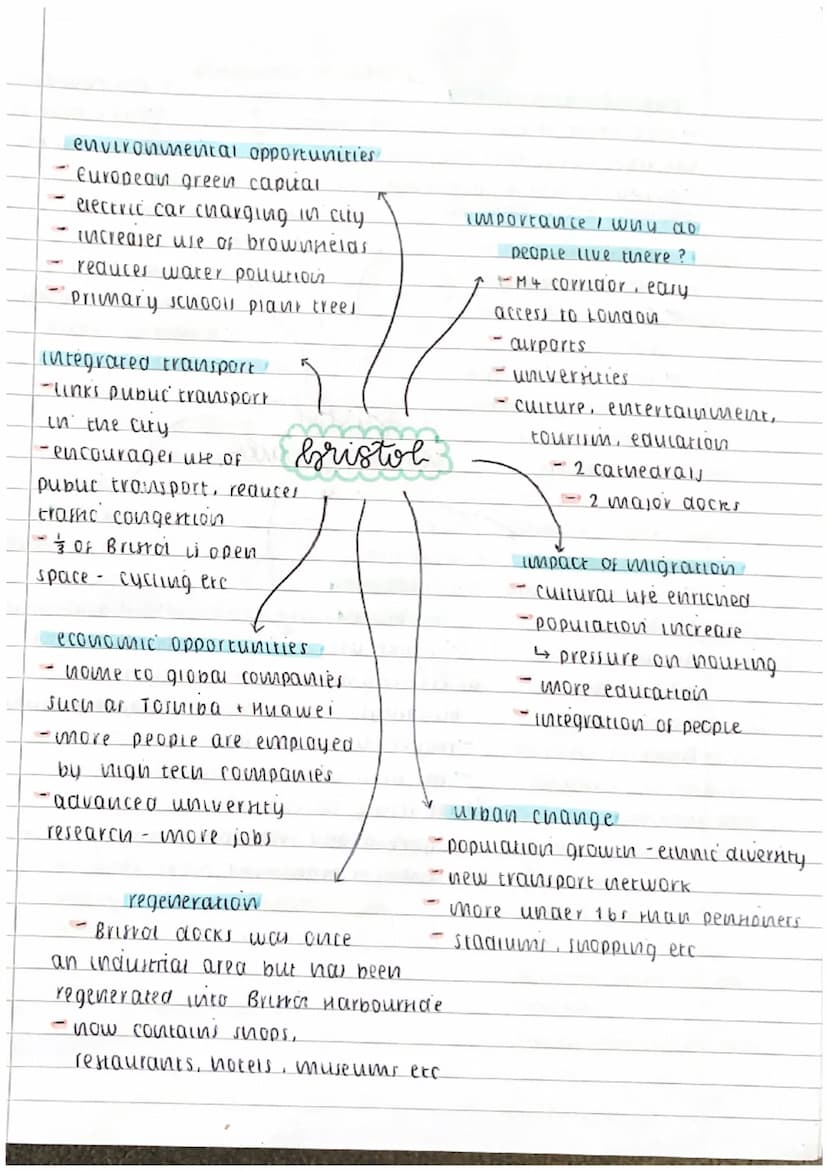 environmental opportunities
- European green capital
- electric car charging in city
- increases use of brownfields
- reduces water pollution
- primary schools plant trees
importance / why do
people live there?
- M4 corridor, easy
access to London
- airports
- universities
- culture, entertainment,
tourism, education
- 2 cathedrals
- 2 major docks
integrated transport
- links public transport
in the city
- encourages use of
public transport, reduces
traffic congestion
- ⅓ of Bristol is open
space - cycling etc
bristol
impact of migration
- cultural life enriched
- population increase
↳ pressure on housing
- more education
- integration of people
economic opportunities
- home to global companies
such as Toshiba + Huawei
- more people are employed
by high tech companies
- advanced university
research - more jobs
urban change
- population growth - ethnic diversity
- new transport network
- more under 16s than pensioners
- stadiums, shopping etc
regeneration
- Bristol docks was once
an industrial area but has been
regenerated into Bristol Harbourside
- now contains shops,
restaurants, hotels, museums etc